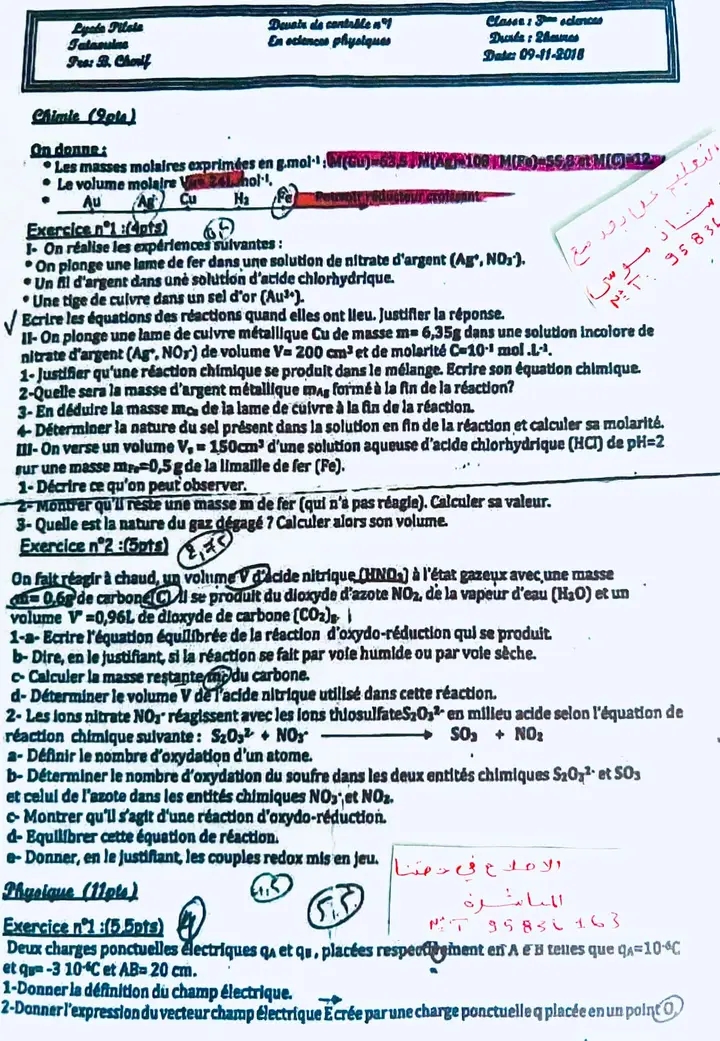 Lycée Pilote
Tataouine
Pro: B. Cherif
Devoir de contrôle n°1
En sciences physiques
Classe : 3ème sciences
Durée : 2heures
Date: 09-11-2018
Chimie (9pts)
On donne :
• Les masses molaires exprimées en g.mol⁻¹ : M(Cu)=63,5 , M(Ag)=108 M(Fe)=55,8 et M(C)=12.
• Le volume molaire Vm= 24L.mol⁻¹.
• Au Ag Cu H₂ Fe Pouvoir réducteur croissant
Exercice n°1 :(4pts)
I- On réalise les expériences suivantes :
• On plonge une lame de fer dans une solution de nitrate d'argent (Ag⁺, NO₃⁻).
• Un fil d'argent dans une solution d'acide chlorhydrique.
• Une tige de cuivre dans un sel d'or (Au³⁺).
Ecrire les équations des réactions quand elles ont lieu. Justifier la réponse.
II- On plonge une lame de cuivre métallique Cu de masse m= 6,35g dans une solution incolore de
nitrate d'argent (Ag⁺, NO₃⁻) de volume V= 200 cm³ et de molarité C=10⁻¹ mol .L⁻¹.
1- Justifier qu'une réaction chimique se produit dans le mélange. Ecrire son équation chimique.
2-Quelle sera la masse d'argent métallique mAg formé à la fin de la réaction?
3- En déduire la masse mCu de la lame de cuivre à la fin de la réaction.
4- Déterminer la nature du sel présent dans la solution en fin de la réaction et calculer sa molarité.
III- On verse un volume Vₐ = 150cm³ d'une solution aqueuse d'acide chlorhydrique (HCl) de pH=2
sur une masse mFe=0,5 g de la limaille de fer (Fe).
1- Décrire ce qu'on peut observer.
2- Montrer qu'il reste une masse m de fer (qui n'a pas réagie). Calculer sa valeur.
3- Quelle est la nature du gaz dégagé ? Calculer alors son volume.
Exercice n°2 :(5pts)
2,75
On fait réagir à chaud, un volume V d'acide nitrique (HNO₃) à l'état gazeux avec une masse
m= 0,6g de carbone (C) il se produit du dioxyde d'azote NO₂, de la vapeur d'eau (H₂O) et un
volume V' =0,96L de dioxyde de carbone (CO₂)g.
1-a- Ecrire l'équation équilibrée de la réaction d'oxydo-réduction qui se produit.
b- Dire, en le justifiant, si la réaction se fait par voie humide ou par voie sèche.
c- Calculer la masse restante mc du carbone.
d- Déterminer le volume V de l'acide nitrique utilisé dans cette réaction.
2- Les ions nitrate NO₃⁻ réagissent avec les ions thiosulfateS₂O₃²⁻ en milieu acide selon l'équation de
réaction chimique suivante : S₂O₃²⁻ + NO₃⁻ → SO₃ + NO₂
a- Définir le nombre d'oxydation d'un atome.
b- Déterminer le nombre d'oxydation du soufre dans les deux entités chimiques S₂O₃²⁻ et SO₃
et celui de l'azote dans les entités chimiques NO₃⁻ et NO₂.
c- Montrer qu'il s'agit d'une réaction d'oxydo-réduction.
d- Equilibrer cette équation de réaction.
e- Donner, en le justifiant, les couples redox mis en jeu.
الاصلاح في حصتنا
المباشرة
N:T 95836 163
Physique (11pts)
5,5
Exercice n°1 :(5,5pts)
Deux charges ponctuelles électriques qA et qB , placées respectivement en A e B telles que qA=10⁻⁶C
et qB= -3 10⁻⁶C et AB= 20 cm.
1-Donner la définition du champ électrique.
2-Donner l'expression du vecteur champ électrique E crée par une charge ponctuelle q placée en un point O.